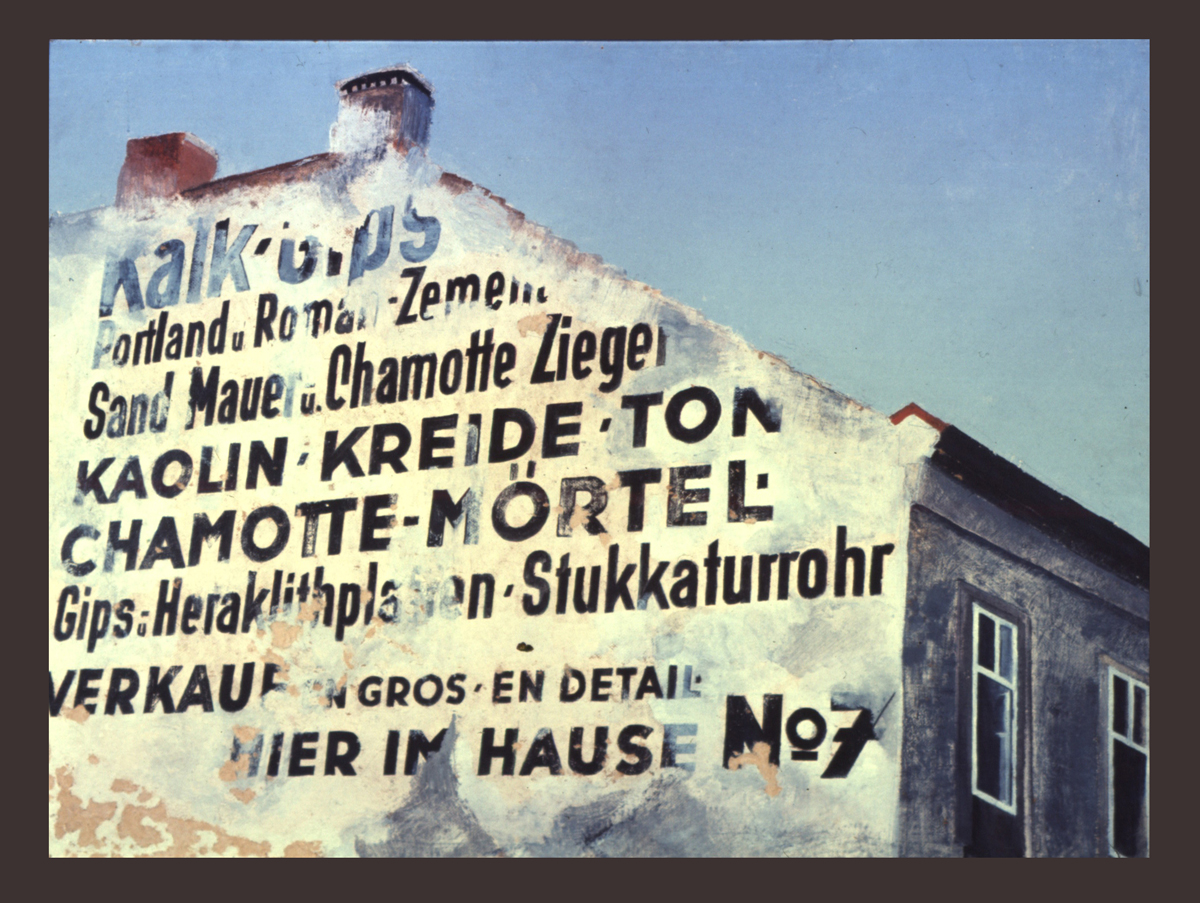 Kalk·Gips
Portland u. Roman-Zement
Sand Mauer u. Chamotte Ziegel
KAOLIN·KREIDE·TON
CHAMOTTE-MÖRTEL·
Gips-u. Heraklithplatten·Stukkaturrohr
VERKAUF EN GROS·EN DETAIL·
HIER IM HAUSE No 7